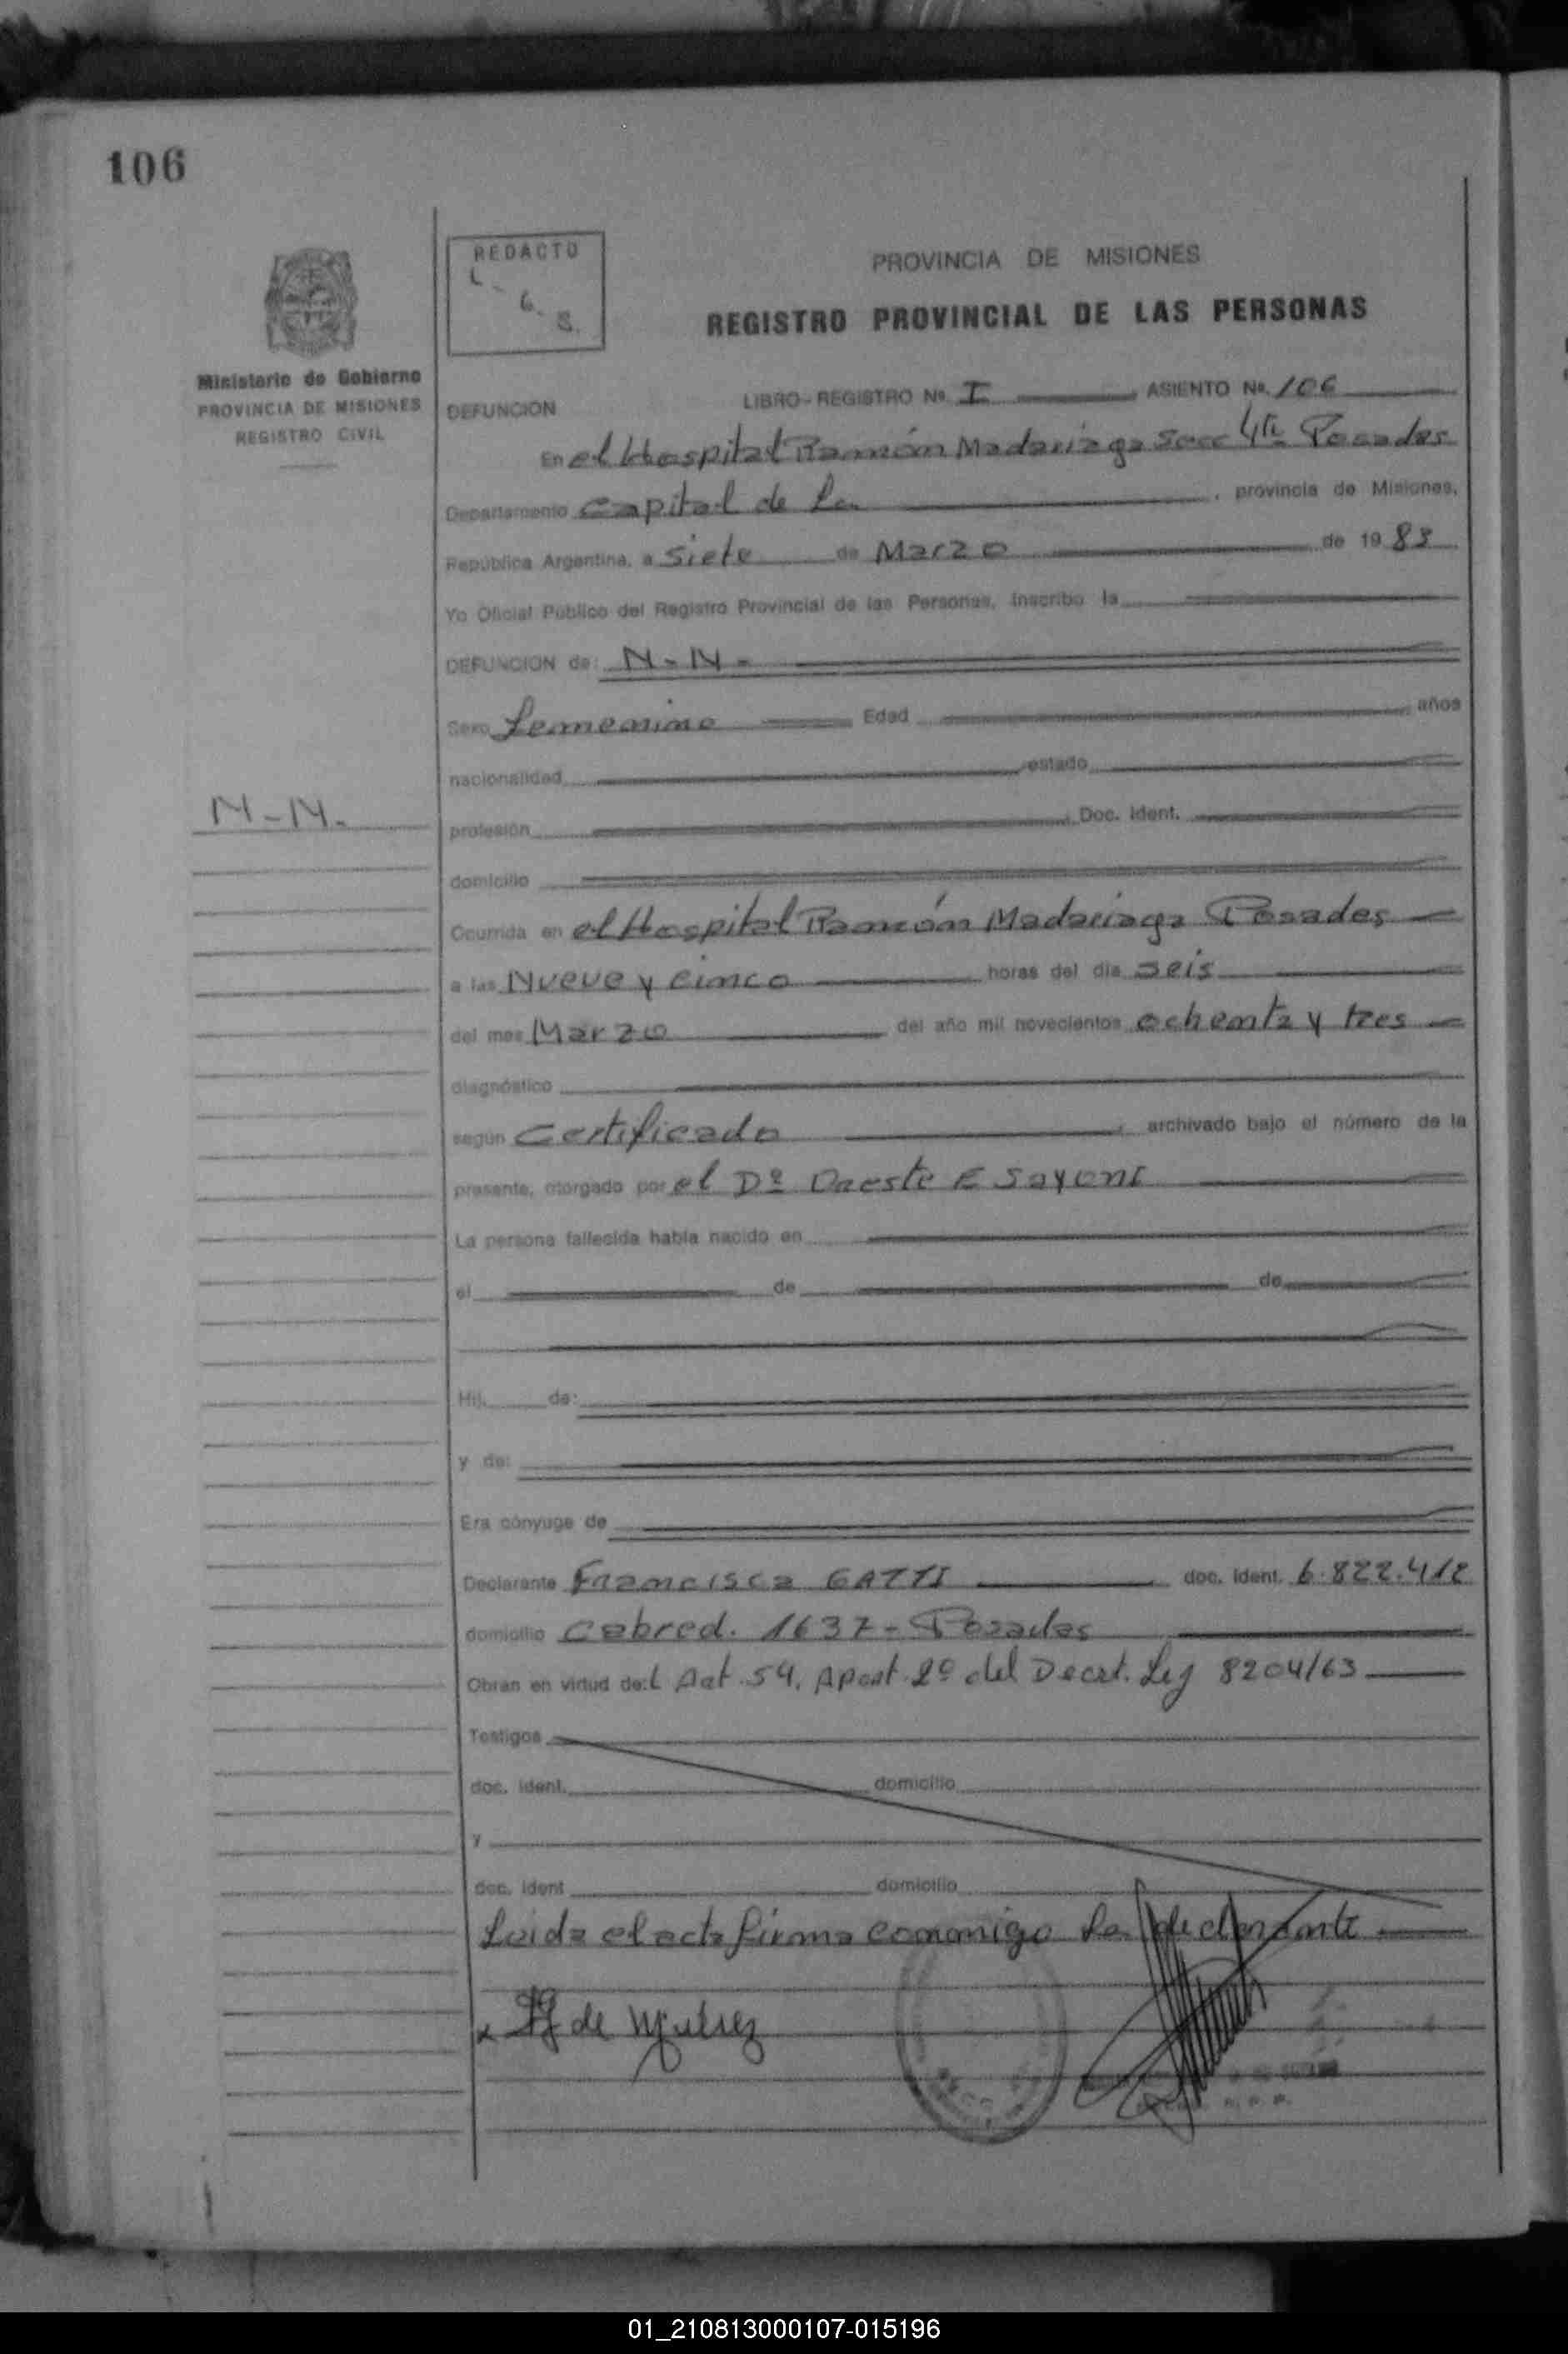 106
REDACTO
L - G. S.
PROVINCIA DE MISIONES
REGISTRO PROVINCIAL DE LAS PERSONAS
Ministerio de Gobierno
PROVINCIA DE MISIONES
REGISTRO CIVIL
DEFUNCION
LIBRO - REGISTRO Nº I ASIENTO Nº 106
En el Hospital Ramón Madariaga Secc 4ta Posadas
Departamento Capital de La , provincia de Misiones,
República Argentina, a Siete de Marzo de 19 83
Yo Oficial Público del Registro Provincial de las Personas, inscribo la
DEFUNCION de: N-N-
Sexo femenino Edad años
nacionalidad estado
N-N.
profesión Doc. Ident.
domicilio
Ocurrida en el Hospital Ramón Madariaga Posadas
a las Nueve y cinco horas del día seis
del mes Marzo del año mil novecientos ochenta y tres
diagnóstico
según Certificado , archivado bajo el número de la
presente, otorgado por el Dº Oreste E Sayoni
La persona fallecida había nacido en
el de de
Hij de:
y de:
Era cónyuge de
Declarante Francisca GATTI doc. Ident. 6.822.412
domicilio Cabred. 1637 - Posadas
Obran en virtud de:l Art. 54. Apart. 2º del Decrt. Ley 8204/63
Testigos
doc. ident. domicilio
y
doc. ident domicilio
Leida el acta firma conmigo la declarante
x de
01_210813000107-015196